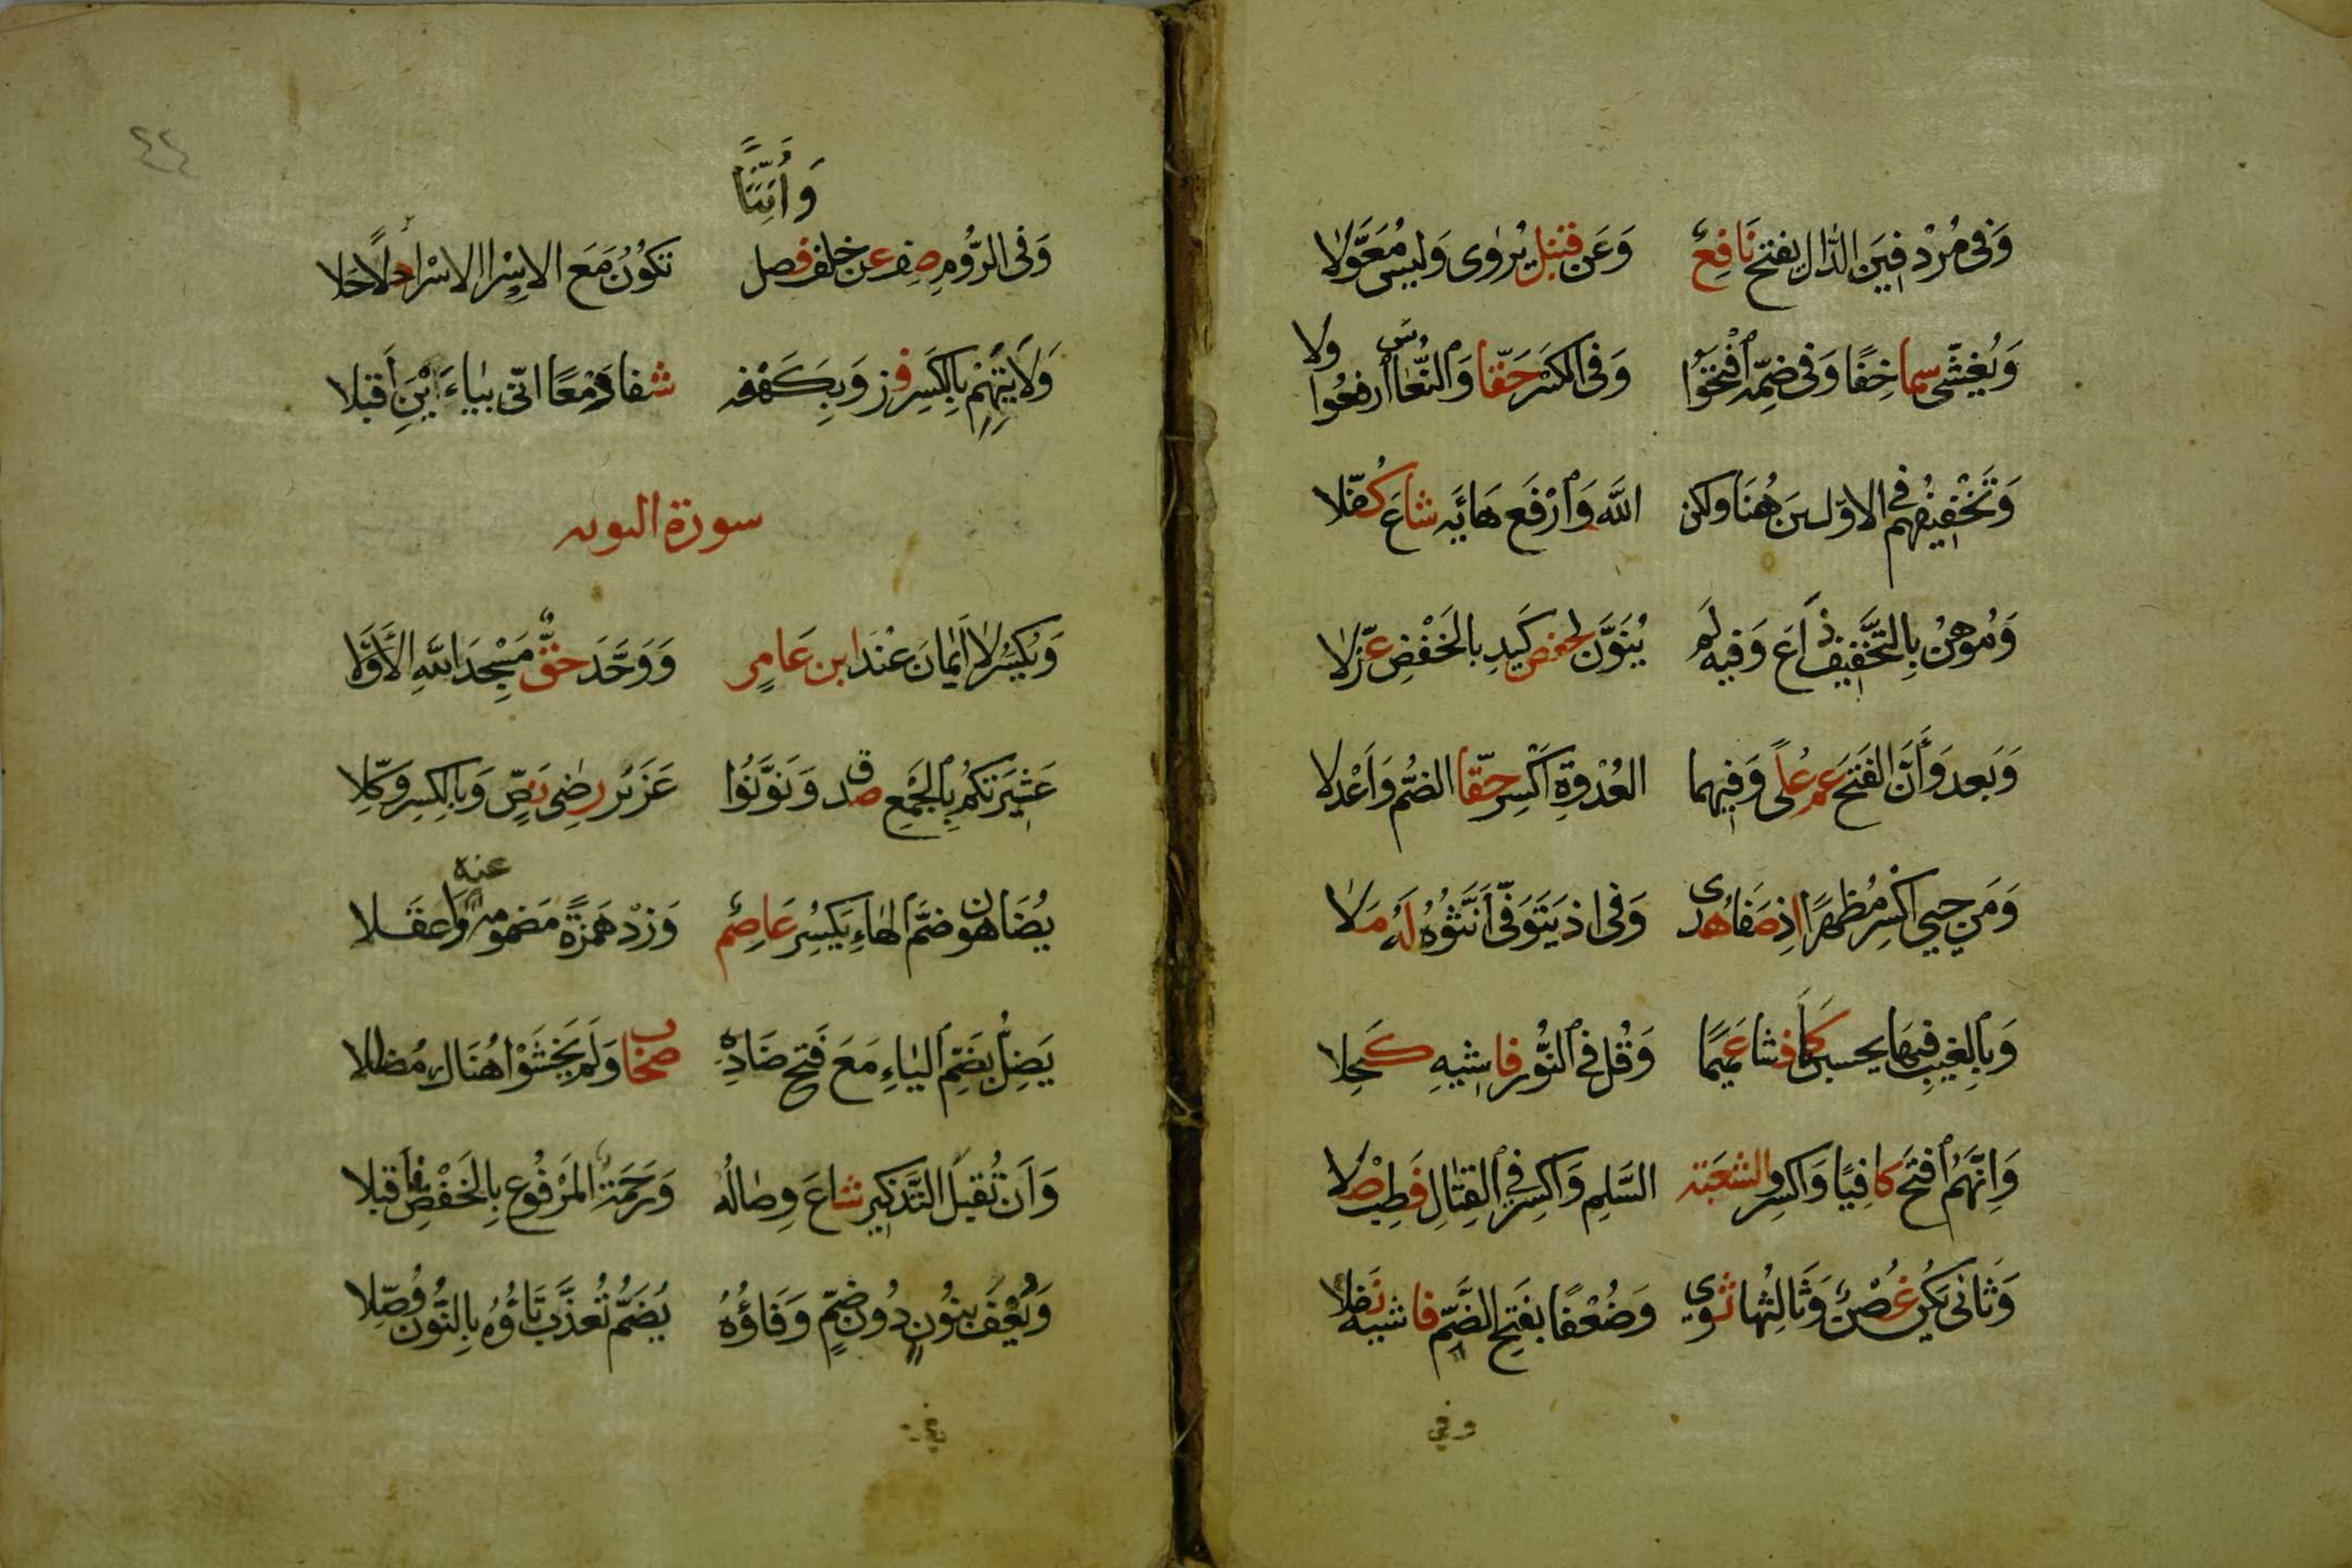 وَفِى مُرْدِفِينَ الدَّالَ يَفْتَحُ نَافِعٌ وَعَن قُنْبُلٍ يُرْوٰى وَلَيسَ مُعَوَّلَا
وَيُغْشِى سَمَا خِفًّا وَفِى ضَمِّهِ افْتَحُوا وَفِى الكَسْرِ حَقًّا وَالنُّعَاسَ ارْفَعُوا وِلَا
وَتَخْفِيفُهُمْ فِي الاوّلين هُنَا ولكن اللّٰهُ وَارْفَع هَاءَهُ شَاعَ كُفَّلا
وَمُوهِنُ بِالتَّخْفِيفِ ذَاعَ وَفِيهِ لَمْ يُنَوَّن لحفص كَيدِ بالخَفْضِ عَوَّلَا
وَبَعد وَأَنَّ الفَتحَ عَمَّ عُلًى وَفِيهِما العُدْوَةِ اكْسِر حَقًّا الضُّم وَاَعْدِلَا
وَمَن حَيِىَ اكْسِر مُظْهِرًا اِذ صَفَا هُدى وَفِى اذ يَتَوَفّى اَنِّثُوهُ لَهُ مَلَا
وَبِالغَيبِ فِيهَا يحسبن كَمَا فَشَا عَمِيمًا وَقُل فِي النُّورِ فَاشِيهِ كَحَلا
وَاِنَّهُمُ افْتَح كافِيًا وَاكْسِرُوا لِشُعْبَة السَّلِمِ وَاكْسِر فِي القِتَالِ فَطِبْ صِلَا
وَثَانِى يَكُن غُصْنٌ وَثَالِثُها ثَوى وَضُعْفًا بفَتحِ الضَّمّ فَاشِيه نُفِّلا
وفي
٤٤
وَأَمِنًّا
وَفِى الرُّومِ صِف عن خلف فصل تَكُونُ مَعَ الاسْرا الاسْرا حُلًا حَلا
وَلَايَتِهِمْ بِالكَسِر فز وَبِكَهْفه شفا وَمَعًا انّى بيَاءَيْنِ اَقبَلا
سورة التوبه
وَيُكْسَرُ لَا اَيْمَانَ عِنْدَ ابن عَامِرٍ وَوَحَّدَ حَقٌّ مَسْجِدَ اللهِ الأَوَّلَا
عَشِيرَتكُم بِالجَمْعِ صدق وَنَوَّنُوا عَزَيْرٌ رِضٰى نَصٍّ وَبِالكَسِر وُكِّلا
يُضَاهون ضَمَّ الهَاءِ يَكْسِر عَاصِمٌ وَزِدْ هَمزَةً مَضمومةً عنه وَاعقَلا
يَضِلُّ بِضَمِّ اليَاءِ مَعَ فَتحِ ضَادِهِ صحاب وَلَم يَخْشَوْا هُنَاك مُضَلِّلا
وَاَن تُقْبَلَ التَّذكِير شَاعَ وِصَالُه وَرَحمَةُ المَرْفُوع بِالخَفْضِ فاقبلا
وَيُعْفَ بنُون دُونَ ضَمٍّ وَفَاؤُهُ يُضَمُّ تُعَذَّب تَاؤُهُ بِالنُّون وُصِّلا